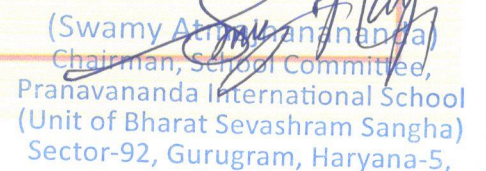 (Swamy
Chairman, School Committee,
Pranavananda International School
(Unit of Bharat Sevashram Sangha)
Sector-92, Gurugram, Haryana-5,